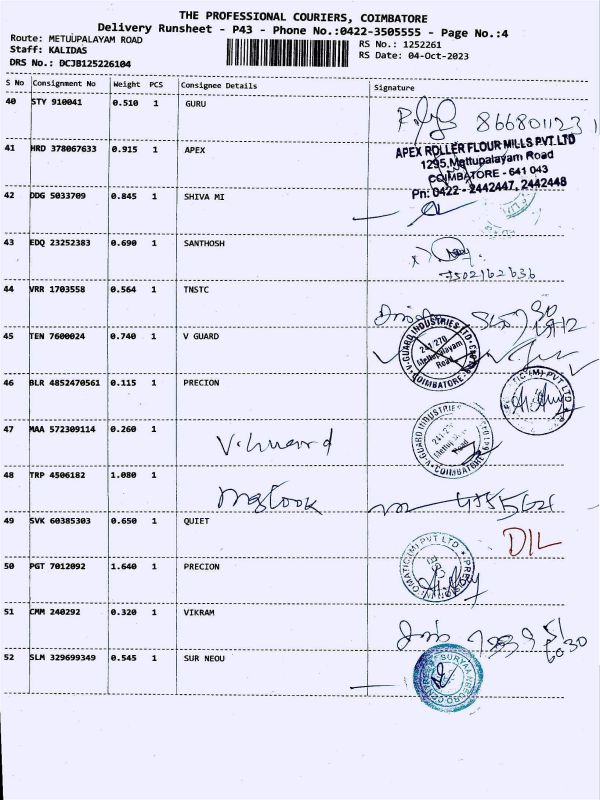 THE PROFESSIONAL COURIERS, COIMBATORE
Delivery Runsheet - P43 - Phone No.:0422-3505555 - Page No.:4
Route: METUUPALAYAM ROAD
RS No.: 1252261
Staff: KALIDAS
RS Date: 04-Oct-2023
DRS No.: DCJB125226104
S No Consignment No Weight PCS Consignee Details Signature
40 STY 910041 0.510 1 GURU
8668011231
41 HRD 378067633 0.915 1 APEX
APEX ROLLER FLOUR MILLS PVT.LTD
1295, Mettupalayam Road
COIMBATORE - 641 043
Pn: 0422 - 2442447, 2442448
42 DDG 5033709 0.845 1 SHIVA MI
43 EDQ 23252383 0.690 1 SANTHOSH
7502162636
44 VRR 1703558 0.564 1 TNSTC
45 TEN 7600024 0.740 1 V GUARD
V-GUARD INDUSTRIES LTD
241-270
Mettupalayam
Road
COIMBATORE
46 BLR 4852470561 0.115 1 PRECION
47 MAA 572309114 0.260 1
V.Guard
V-GUARD INDUSTRIES
Road
COIMBATORE
48 TRP 4506182 1.080 1
49 SVK 60385303 0.650 1 QUIET
DIL
50 PGT 7012092 1.640 1 PRECION
OMATIC (M) PVT LTD
51 CMM 240292 0.320 1 VIKRAM
52 SLM 329699349 0.545 1 SUR NEOU